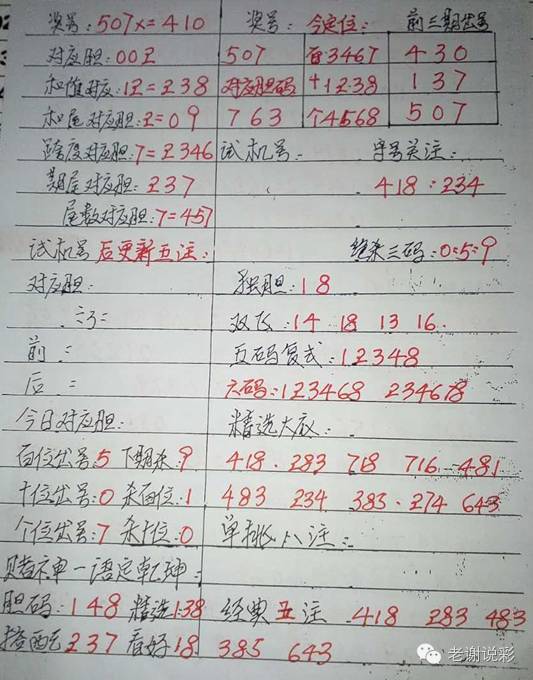 奖号:507x=410 奖号: 今定位: 前三期出号
对应胆:00 2 507 百3467 430
和值对应:12=238 对应胆码 十1238 137
和尾对应胆:2=09 763 个4568 507
跨度对应胆:7=2346 试机号: 字号关注:
期尾对应胆:237 418:234
尾数对应胆:7=457
试机号后更新五注: 绝杀三码:0:5:9
对应胆: 独胆:18
双飞:14 18 13 16
前: 五码复式:12348
后: 六码:123468 234678
今日对应胆: 精选大底:
百位出号:5 下期杀:9 418. 283 718 716 481
十位出号:0 杀百位:1 483 234 383. 274 643
个位出号:7 杀十位:0 单挑八注:
赌神一语定乾坤:
胆码:148 精选138 经典五注 418 283 483
搭配237 看好18 385 643
老谢说彩